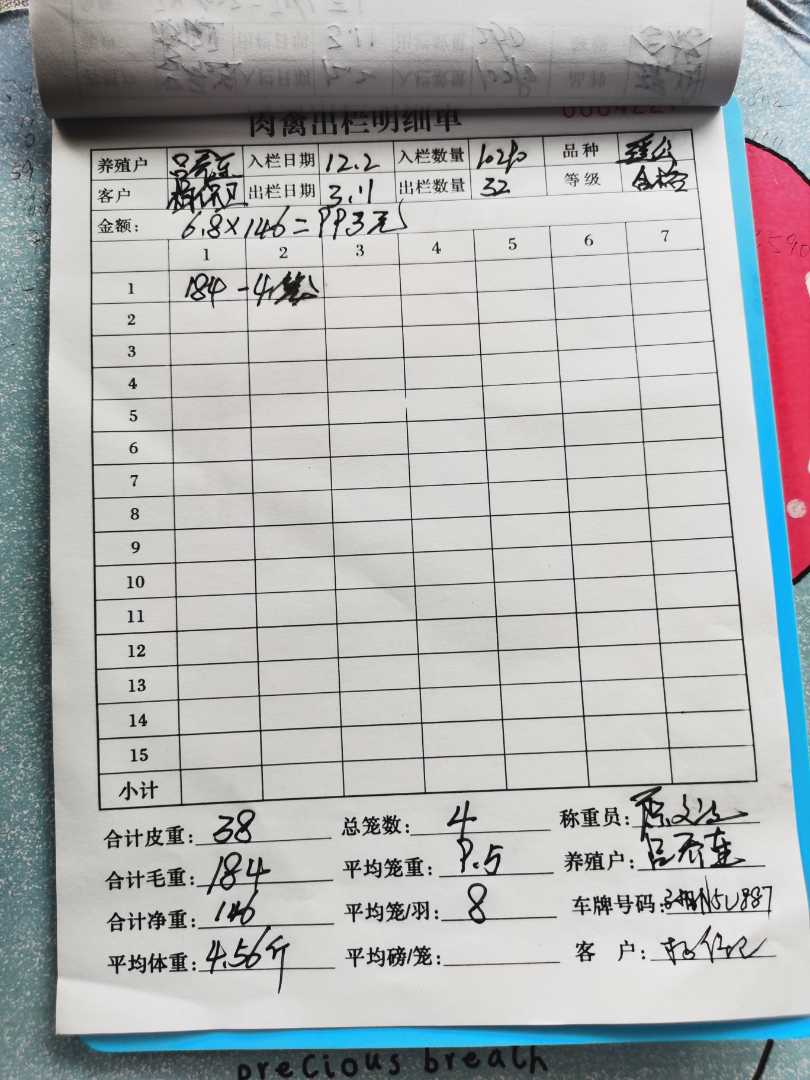 肉禽出栏明细单
养殖户 入栏日期 12.2 入栏数量 10210 品种
客户 出栏日期 3.11 出栏数量 32 等级 合格
金额: 6.8×146=993元
1 2 3 4 5 6 7
1 184 -4笼
2
3
4
5
6
7
8
9
10
11
12
13
14
15
小计
合计皮重: 38 总笼数: 4 称重员:
合计毛重: 184 平均笼重: 9.5 养殖户:
合计净重: 146 平均笼/羽: 8 车牌号码:
平均体重: 4.56斤 平均磅/笼: 客 户:
precious breath